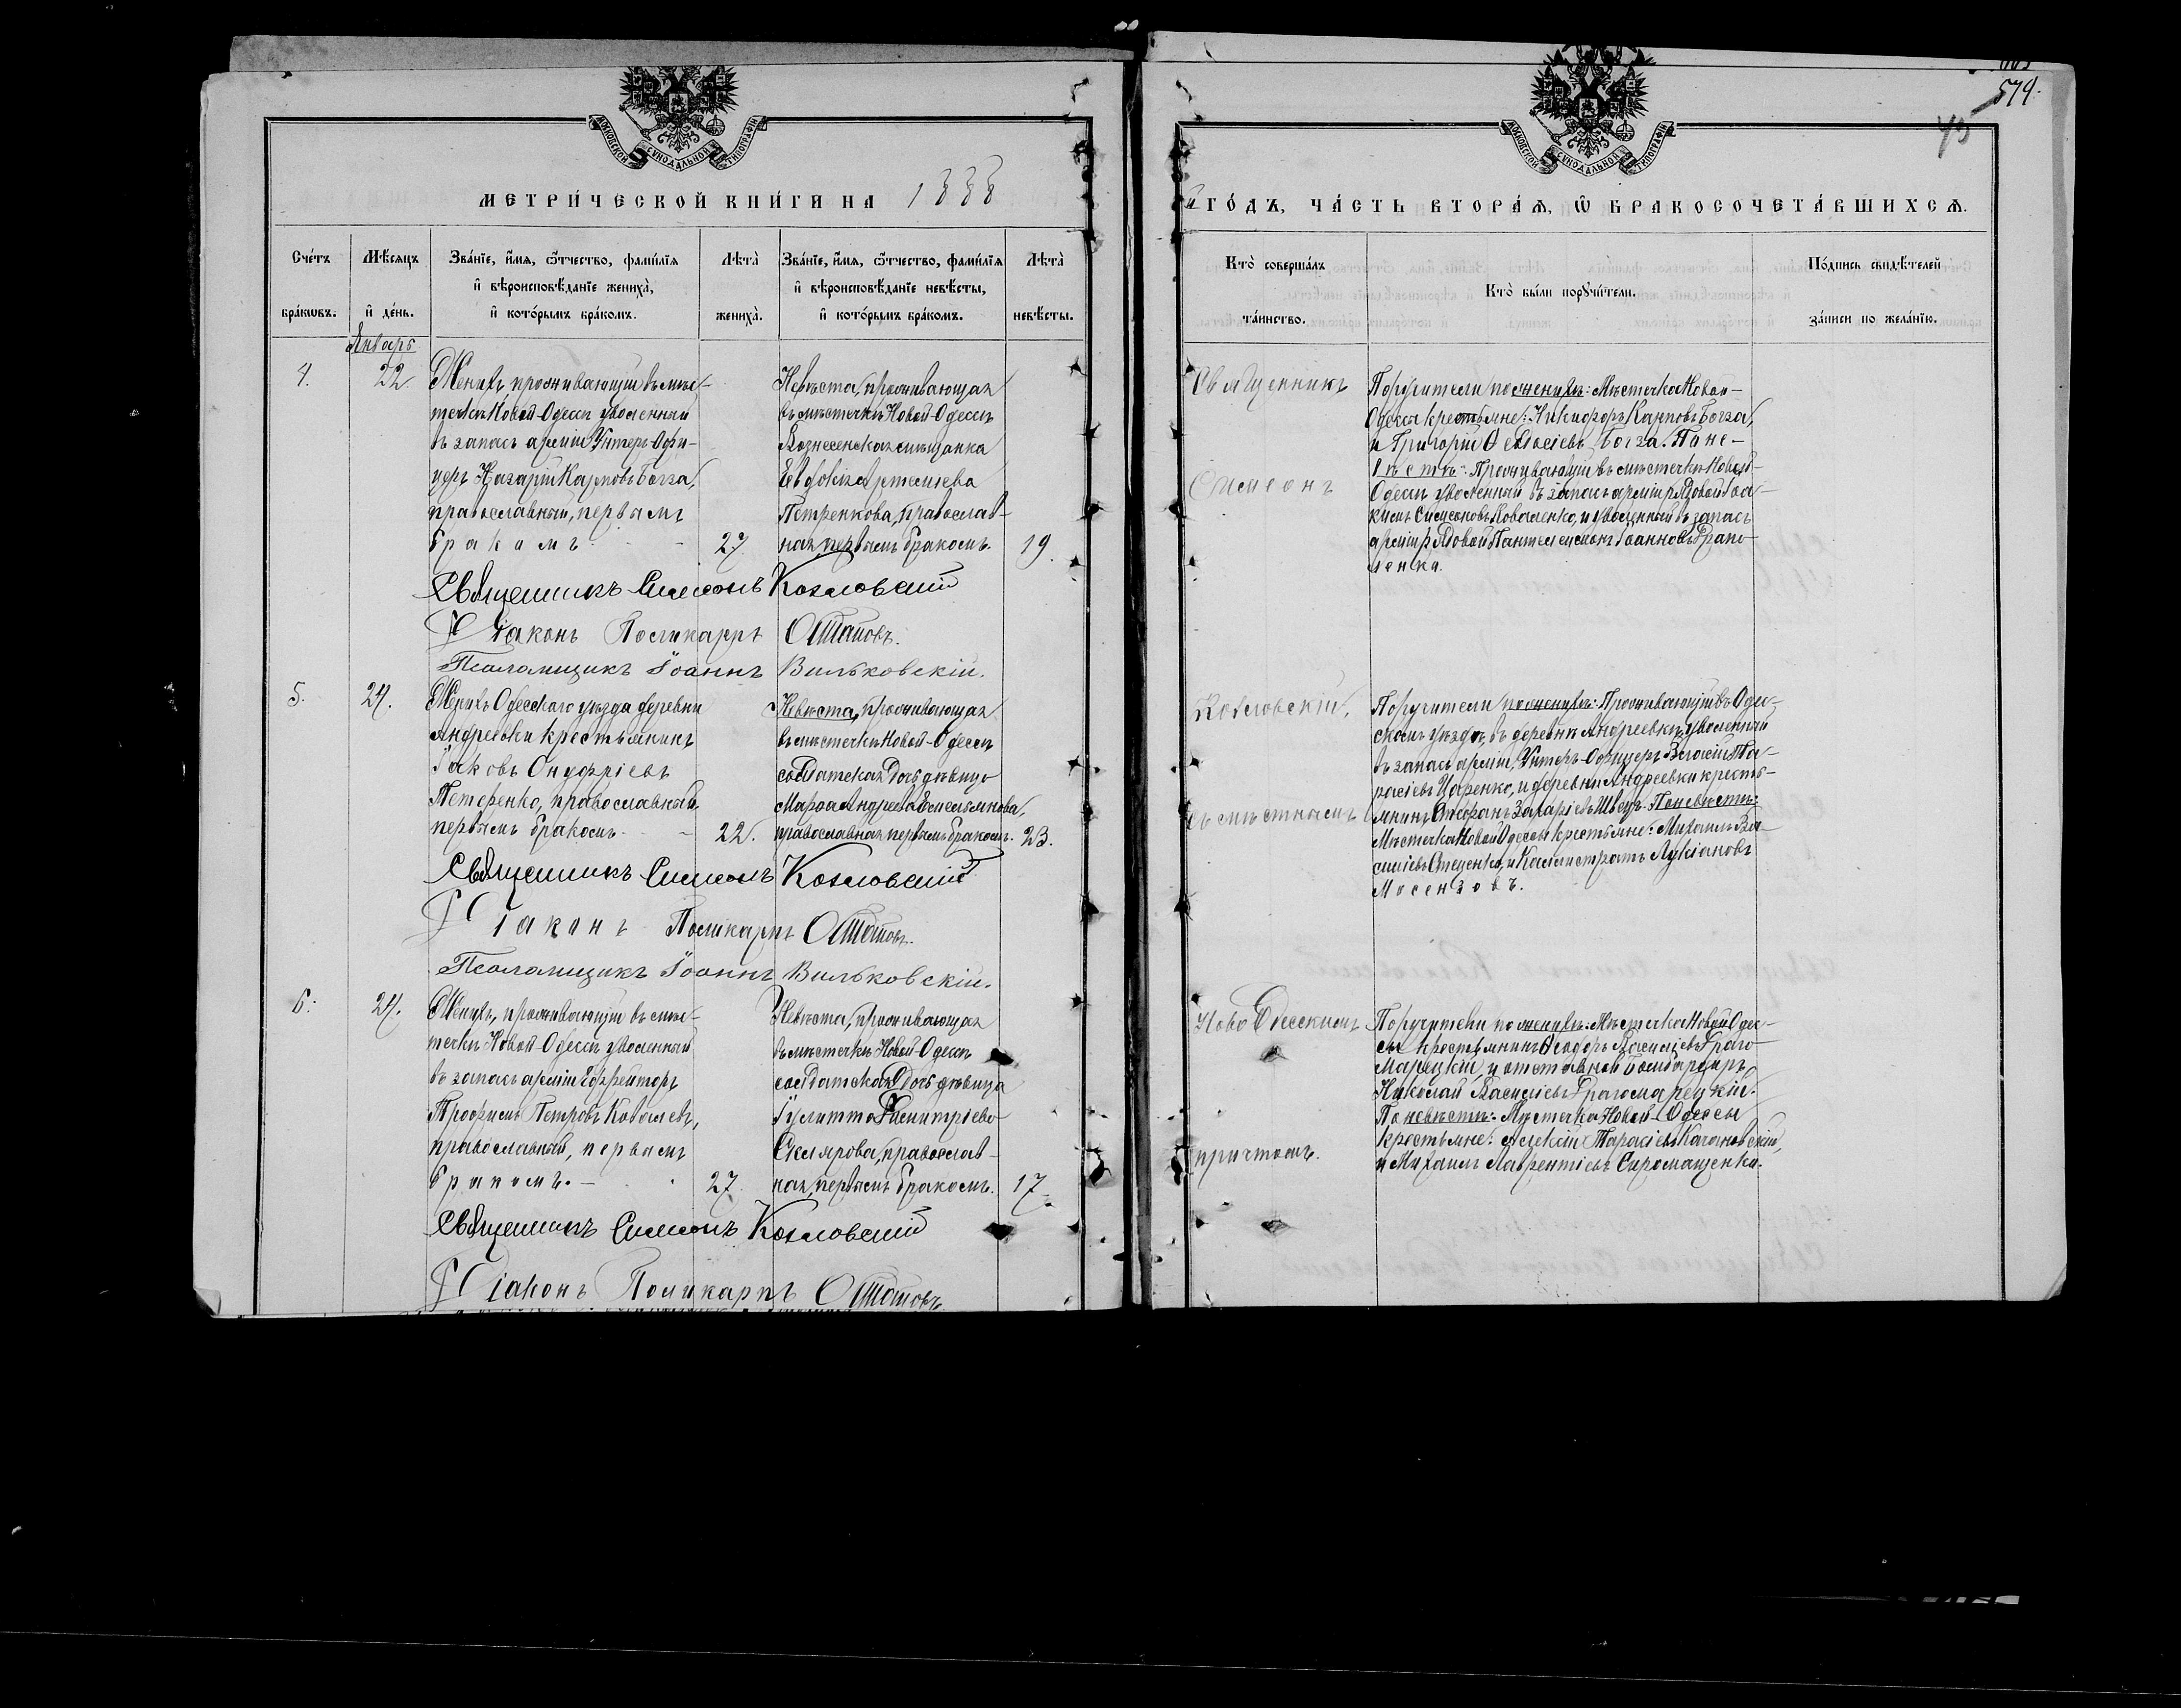 МОСКОВСКОЙ СѴНОДАЛЬНОЙ ТИПОГРАФІИ
МЕТРИ́ЧЕСКОЙ КНИ́ГИ НА 1888
Сче́тъ бра́кѡвъ.
Мѣ́сяцъ и҆ де́нь.
Зва́нїе, и҆́мя, ѻ҆́тчество, фамѝлїя
и҆ вѣроисповѣ́данїе жениха̀,
и҆ кото́рымъ бра́комъ.
Лѣта̀ жениха̀.
Зва́нїе, и҆́мя, ѻ҆́тчество, фамѝлїя
и҆ вѣроисповѣ́данїе невѣ́сты,
и҆ кото́рымъ бра́комъ.
Лѣта̀ невѣ́сты.
Январь
4.
22.
Женихъ проживающій въ мѣс-
течкѣ Новой-Одессѣ уволенный
въ запасъ арміи Унтеръ-Офи-
церъ Назарій Карповъ Богза,
православный, первымъ
бракомъ
27.
Невѣста, проживающая
въ мѣстечкѣ Новой-Одессѣ
Вознесенская мѣщанка
Евдокія Артемьева
Петренкова, православ-
ная, первымъ бракомъ.
19.
Священникъ Симеонъ Козловскій
Діаконъ Поликарпъ Остаповъ.
Псаломщикъ Іоаннъ Вильковскій.
5.
24.
Женихъ Одесскаго уѣзда деревни
Андреевки крестьянинъ
Іаковъ Онуфріевъ
Петеренко, православный,
первымъ бракомъ
22.
Невѣста, проживающая
въ мѣстечкѣ Новой-Одессѣ
солдатская дочь дѣвица
Марѳа Андреева Емельянова,
православная первымъ бракомъ.
23.
Священникъ Симеонъ Козловскій
Діаконъ Поликарпъ Остаповъ.
Псаломщикъ Іоаннъ Вильковскій.
6.
24.
Женихъ, проживающій въ мѣс-
течкѣ Новой-Одессѣ уволенный
въ запасъ арміи Ефрейторъ
Трофимъ Петровъ Ковалевъ,
православный, первымъ
бракомъ.
27
Невѣста, проживающая
въ мѣстечкѣ Новой-Одессѣ
солдатская дочь дѣвица
Іулитта Димитріева
Склярова, православ-
ная, первымъ бракомъ.
17.
Священникъ Симеонъ Козловскій
Діаконъ Поликарпъ Остаповъ.
579.
43
МОСКОВСКОЙ СѴНОДАЛЬНОЙ ТИПОГРАФІИ
й ГО́ДЪ, ЧА́СТЬ ВТОРА́Я, Ѡ҆ БРАКОСОЧЕТА́ВШИХСЯ.
Кто̀ соверша́лъ та́инство.
Кто̀ бы́ли порꙋчи́тели.
По́дпись свидѣ́телей за́писи по жела́нїю.
Священникъ
Симеонъ
Козловскій,
съ мѣстнымъ
Ново Одесскимъ
причтомъ.
Поручители по женихѣ: Мѣстечка Новой-
Одессы крестьяне: Никифоръ Карповъ Богза,
и Григорій Богза. По не-
вѣстѣ: Проживающій въ мѣстечкѣ Новой-
Одессѣ уволенный въ запасъ арміи рядовой Іоа-
кимъ Симеоновъ Коваленко, и уволенный въ запасъ
арміи рядовой Пантелеимонъ Іоанновъ
Поручители по женихѣ: Проживающій въ Одес-
скомъ уѣздѣ, въ деревнѣ Андреевкѣ, уволенный
въ запасъ арміи, Унтеръ-Офицеръ Власій Та-
расіевъ Царенко, и деревни Андреевки кресть-
янинъ Стефанъ Захаріевъ Швецъ. По невѣстѣ:
Мѣстечка Новой Одессы крестьяне: Михаилъ Ва-
силіевъ Стеценко, и Каллистратъ Лукіановъ
Мосензовъ.
Поручители по женихѣ: Мѣстечка Новой Одес-
сы крестьянинъ Ѳеодоръ Василіевъ Драго-
марецкій, и отставной Бомбардиръ,
Николай Василіевъ Драгомарецкій.
По невѣстѣ: Мѣстечка Новой-Одессы
крестьяне: Алексій Тарасіевъ Качановскій,
и Михаилъ Лаврентіевъ Сиромащенко.